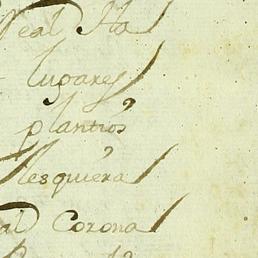 Real Ha
lugares
plantios
lesquiera
al Corona